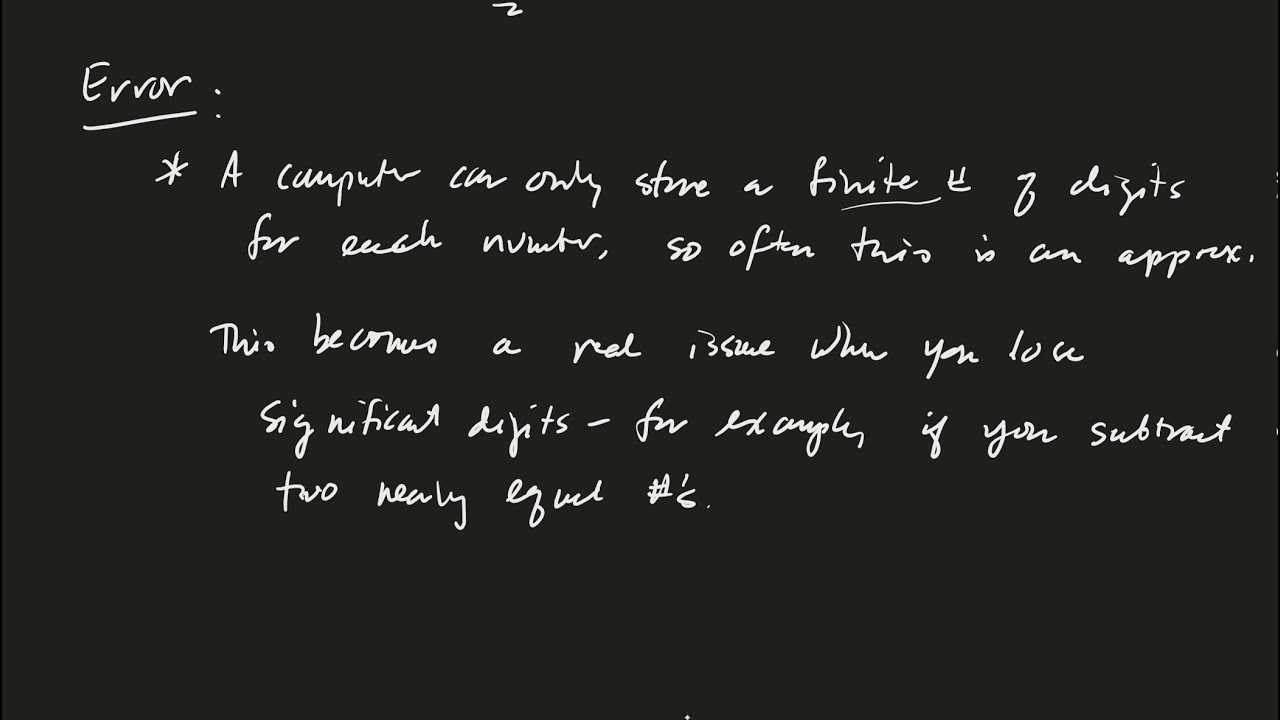 Error:
* A computer can only store a finite # of digits
for each number, so often this is an approx.
This becomes a real issue when you lose
significant digits - for example, if you subtract
two nearly equal #'s.